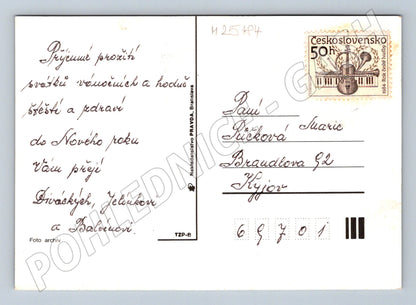 M 25484
Příjemné prožití
svátků vánočních a hodně
štěstí a zdraví
do Nového roku
Vám přejí
Diváckých, Jelínkovi
a Balvínovi.
Foto archív
Vydavateľstvo PRAVDA, Bratislava
TZP-R
Československo
50h
1984 Rok české hudby
Paní
Marie
Půčková
Brandlova 92
Kyjov
69701
POHLEDNICE